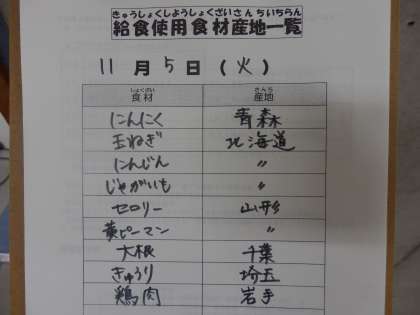 きゅうしょくしようしょくざいさんちいちらん
給食使用食材産地一覧
11月5日(火)
しょくざい さんち
食材 産地
にんにく 青森
玉ねぎ 北海道
にんじん 〃
じゃがいも 〃
セロリー 山形
黄ピーマン 〃
大根 千葉
きゅうり 埼玉
鶏肉 岩手